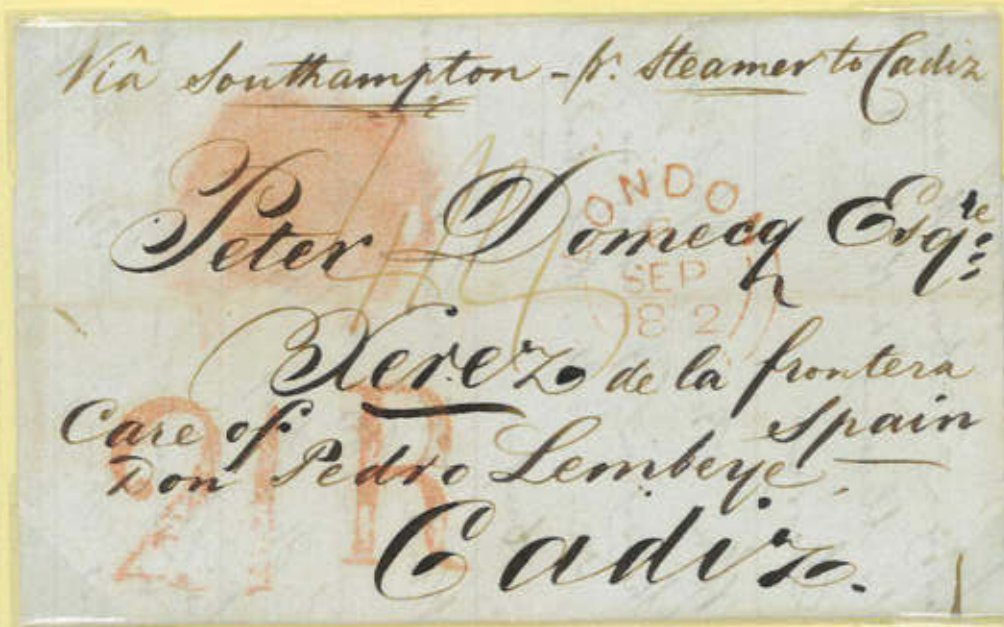 Viâ Southampton - pr. Steamer to Cadiz
Peter Domecq Esqre.
Xerez de la frontera
Spain
Care of
Don Pedro Lembeye
Cadiz.
LONDON
SEP
21 R